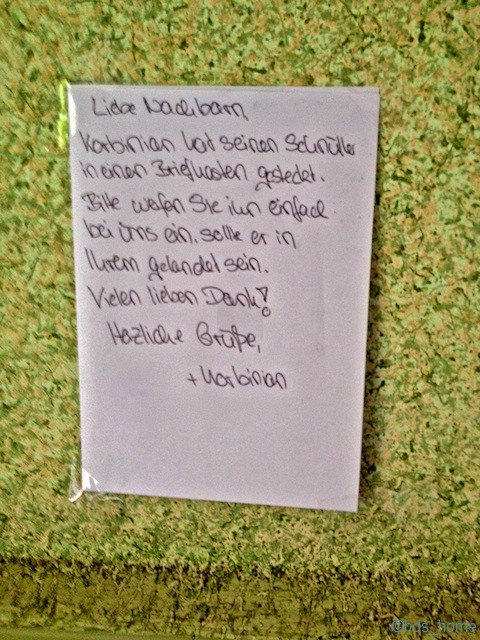 Liebe Nachbarn,
Korbinian hat seinen Schnuller
in einen Briefkasten gesteckt.
Bitte werfen Sie ihn einfach
bei uns ein, sollte er in
Ihrem gelandet sein.
Vielen lieben Dank!
Herzliche Grüße,
+ Korbinian
@hds_home